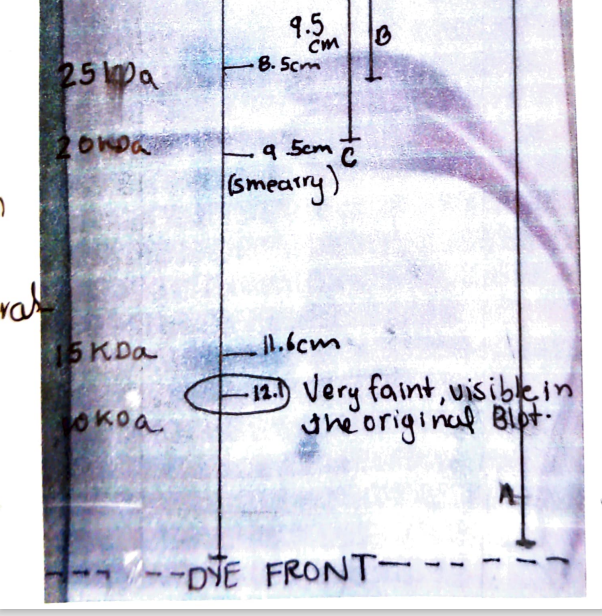 9.5
cm
B
25 kDa
8.5cm
20 kDa
9.5cm
C
(smearry)
15 KDa
11.6cm
12.1
Very faint, visible in
the original Blot.
10 KDa
A
DYE FRONT